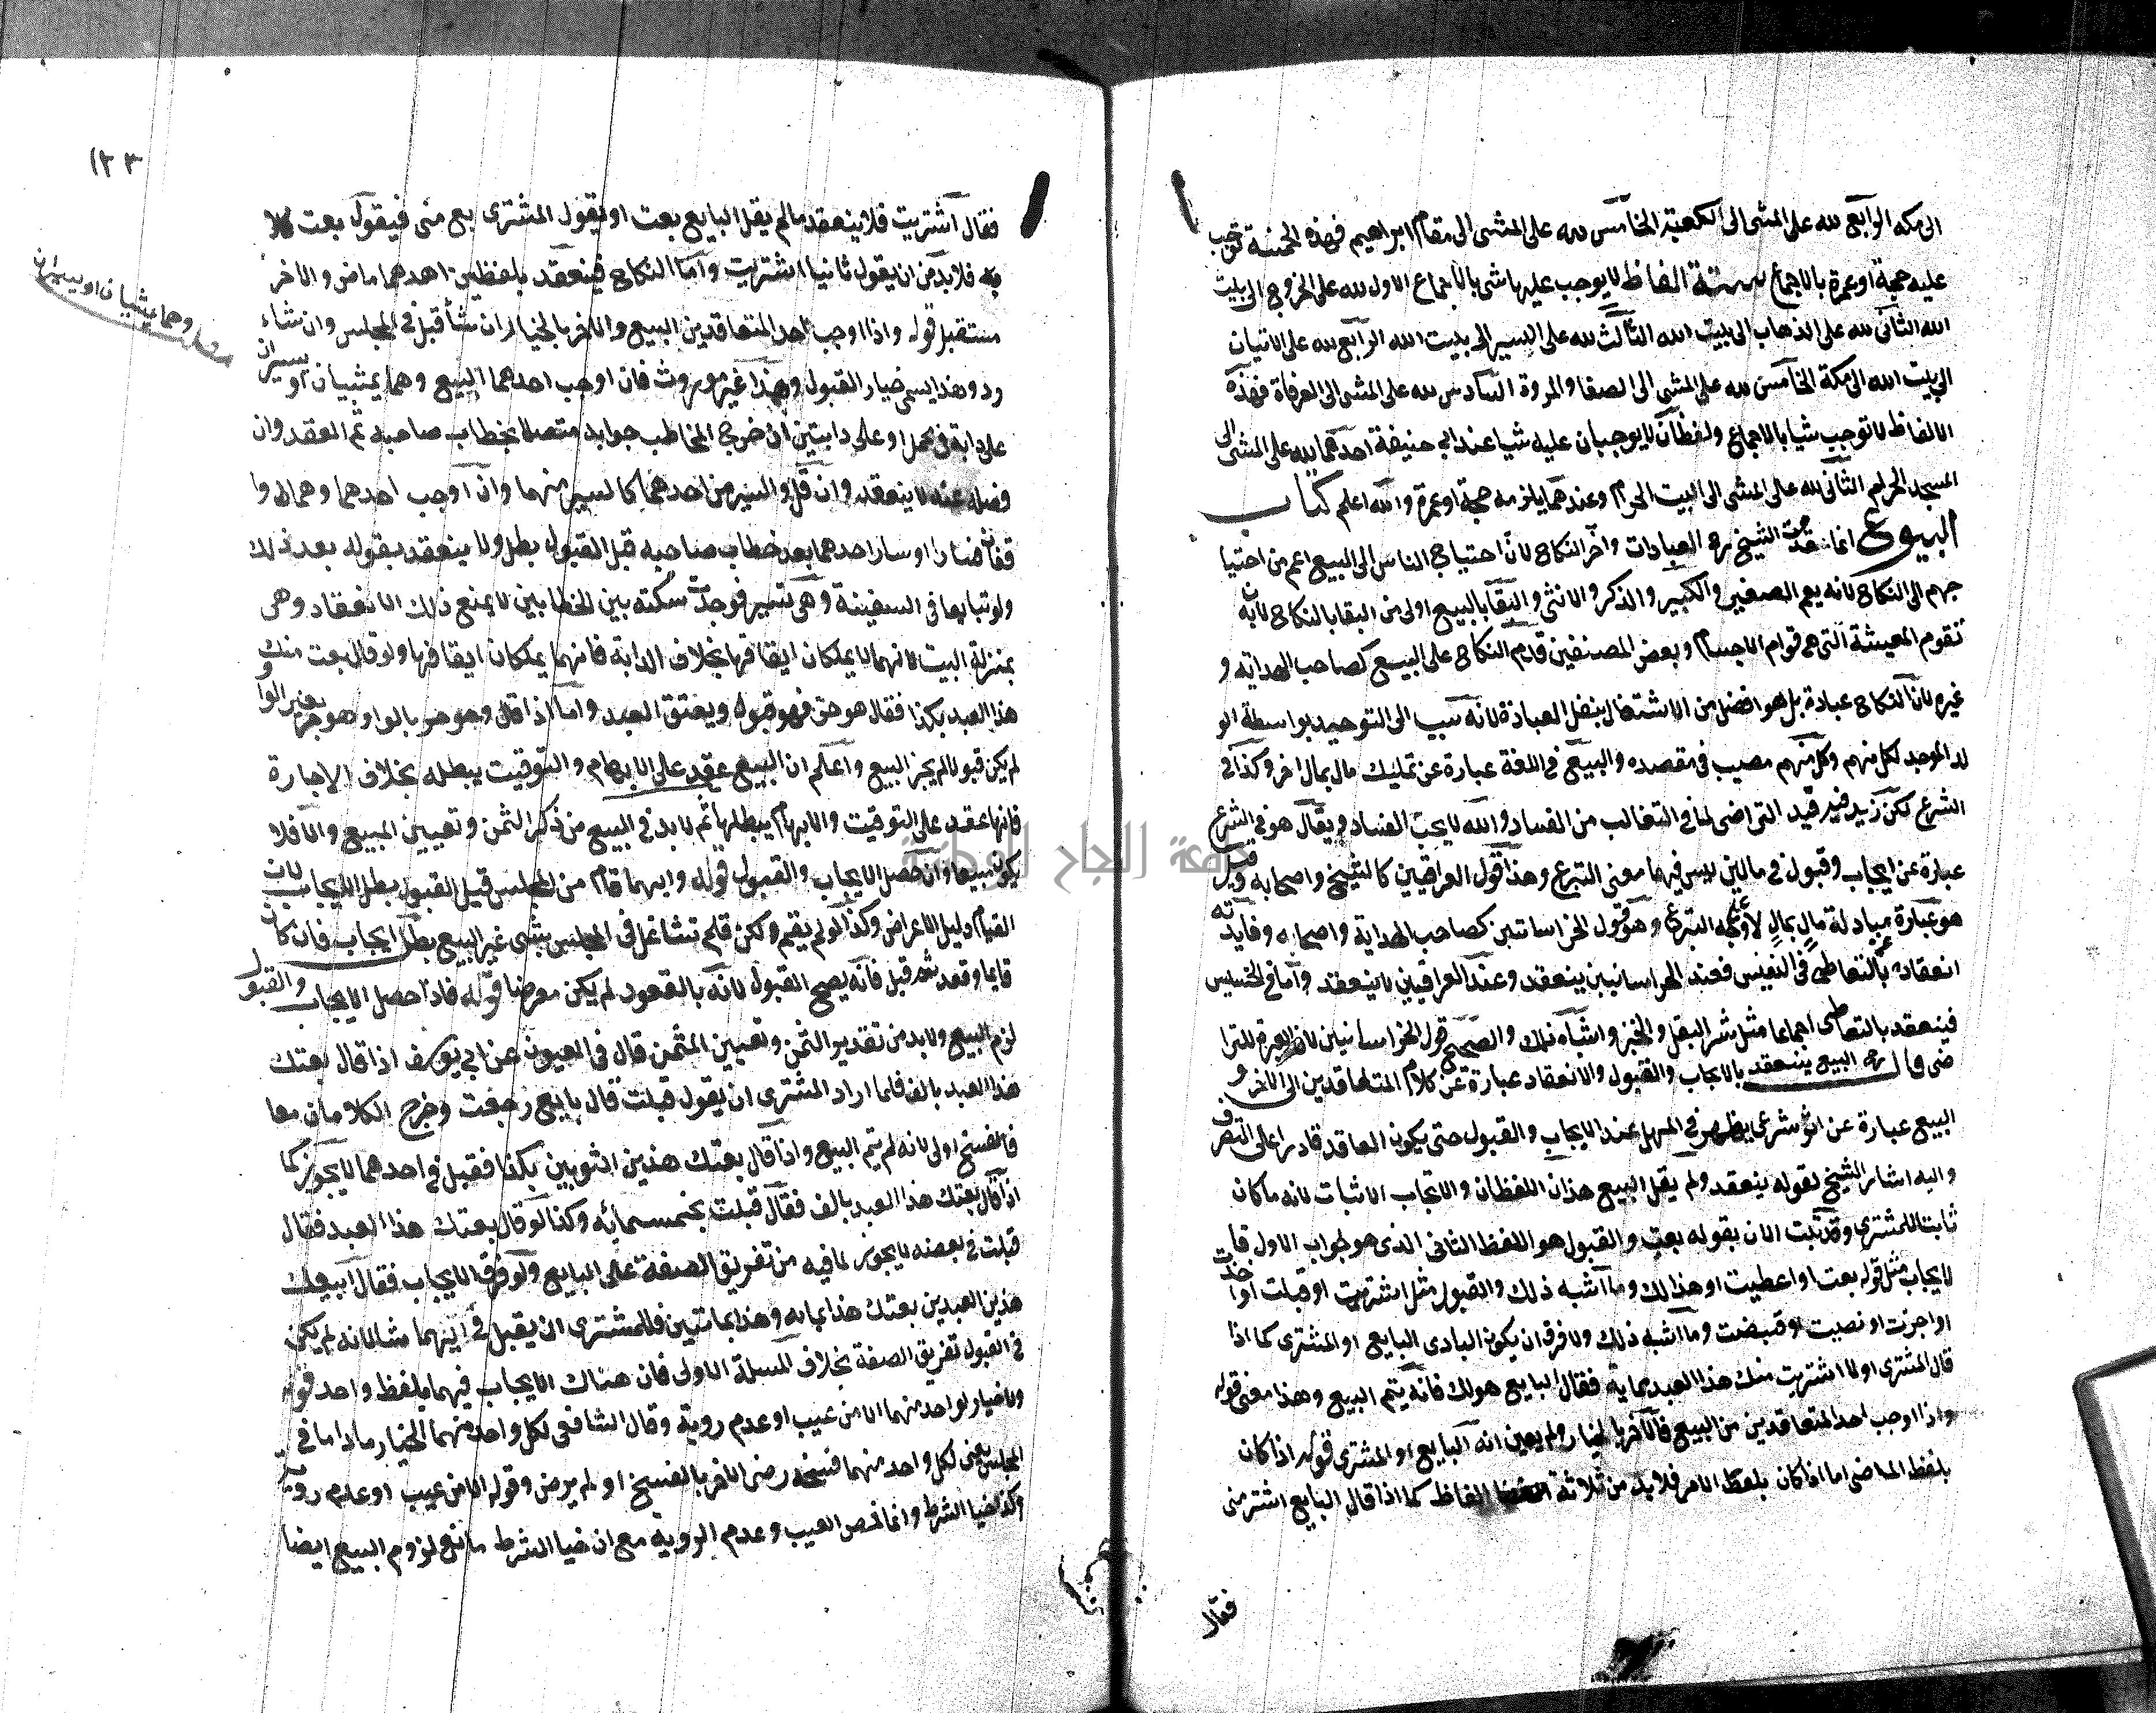 الى مكه الرابع لله على المشى الى الكعبة الخامس لله على المشى الى مقام ابراهيم فهذه الخمسة توجب
عليه حجة او عمرة بالاجماع ستة الفاظ لا يوجب عليه شى بالاجماع الاول لله على الخروج الى بيت
الله الثانى لله على الذهاب الى بيت الله الثالث لله على السير الى بيت الله الرابع لله على الاتيان
الى بيت الله الى مكة الخامس لله على المشى الى الصفا والمروة السادس لله على المشى الى العرفاة فهذه
الالفاظ لا توجب شيا بالاجماع ولفظان لا يوجبان عليه شيا عند ابى حنيفة احدهما لله على المشى الى
المسجد الحرام الثانى لله على المشى الى البيت الحرام وعندهما يلزمه حجة او عمرة والله اعلم كتاب
البيوع انما قدم الشيخ رح العبادات واخر النكاح لان احتياج الناس الى البيع اعم من احتيا
جهم الى النكاح لانه يعم الصغير والكبير والذكر والانثى والبقا بالبيع اولى من البقا بالنكاح لان به
تقوم المعيشة التى هى قوام الاجسام وبعض المصنفين قدم النكاح على البيع كصاحب الهداية و
غيره لان النكاح عبادة بل هو افضل من الاشتغال بنفل العبادة لانه سبب الى التوحيد بواسطة الو
لد الموحد لكل منهم وكل منهم مصيب فى مقصده والبيع فى اللغة عبارة عن تمليك مال بمال اخر وكذا فى
الشرع لكن زيد فيه قيد التراضى لما فى التغالب من الفساد والله لا يحب الفساد ويقال هو فى الشرع
عبارة عن ايجاب وقبول فى مالين ليس فيهما معنى التبرع وهذا قول العراقيين كالشيخ واصحابه وقيل
هو عبارة مبادلة مال بمال لا على وجه التبرع وهو قول الخراسانين كصاحب الهداية واصحابه وفايدته
انعقاده بالتعاطى فى النفيس فعند الخراسانيين ينعقد وعند العراقيين لا ينعقد واما فى الخسيس
فينعقد بالتعاطى اجماعا مثل شر البقل والخبز واشباه ذلك والصحيح قول الخراسانيين لان العبرة للترا
ضى قال رح البيع ينعقد بالايجاب والقبول والانعقاد عبارة عن كلام المتعاقدين الى الاخر و
البيع عبارة عن اثر شرعى يظهر فى المحل عند الايجاب والقبول حتى يكون العاقد قادرا على التصرف
واليه اشار الشيخ بقوله ينعقد ولم يقل البيع هذان اللفظان والايجاب الاثبات لانه ما كان
ثابتا للمشترى وقد ثبت الان بقوله بعت والقبول هو اللفظ الثانى الذى هو جواب الاول فا
لايجاب مثل قوله بعت او اعطيت او هذا لك وما اشبه ذلك والقبول مثل اشتريت او قبلت او اخذت
او اجزت او نصبت او قبضت وما اشبه ذلك ولا فرق ان يكون البادى البايع او المشترى كما اذا
قال المشترى اولا اشتريت منك هذا العبد بماية فقال البايع هو لك فانه يتم البيع وهذا معنى قوله
واذا اوجب احد المتعاقدين من البيع فالاخر بالخيار ولم يعين انه البايع او المشترى قوله اذا كان
بلفظ الماضى اما اذا كان بلفظ الامر فلا بد من ثلاثة الفاظ كما اذا قال البايع اشتر منى
فقال
١٢٣
فقال اشتريت فلا ينعقد ما لم يقل البايع بعت او يقول المشترى بع منى فيقول بعت
فلا بد من ان يقول ثانيا اشتريت واما النكاح فينعقد بلفظين احدهما ماض والاخر
مستقبل قوله واذا اوجب احد المتعاقدين البيع والاخر بالخيار ان شا قبل فى المجلس وان شاء
رد وهذا يسمى خيار القبول وهذا غير موروث فان اوجب احدهما البيع وهما يمشيان او يسيران
على دابة فى محمل او على دابتين ان خرج المخاطب جوابه متصلا بخطاب صاحبه تم العقد وان
فصله عنه لا ينعقد وان قل والسير من احدهما كالسير منهما وان اوجب احدهما وهما
فسارا او سار احدهما بعد خطاب صاحبه قبل القبول بطل ولا ينعقد بقوله بعد ذلك
ولو تبايعا فى السفينة وهى تسير فوجدت سكتة بين الخطابين لا يمنع ذلك الانعقاد وهى
بمنزلة البيت لانهما لا يملكان ايقافها بخلاف الدابة فانهما يملكان ايقافها ولو قال بعت منك
هذا العبد بكذا فقال هو حر فهو قبول ويعتق العبد واما اذا قال وهو حر بالواو او هو حر بغير الوا و
لم يكن قبولا لم يجز البيع واعلم ان البيع عقد على الابهام والتوقيت يبطله بخلاف الاجارة
فانها عقد على التوقيت والابهام يبطلها ثم لا بد فى البيع من ذكر الثمن وتعيين المبيع والا فلا
يكون بيعا وان حصل الايجاب والقبول قوله وايهما قام من المجلس قبل القبول بطل الايجاب لان
القيام دليل الاعراض وكذا لو لم يقم ولكن تشاغل فى المجلس بشى غير البيع بطل الايجاب فان كان
قايما وقعد ثم قبل فانه يصح القبول لانه بالقعود لم يكن معرضا قوله فاذا حصل الايجاب والقبول
لزم البيع ولا بد من تقدير الثمن وتعيين المثمن قال فى العيون عن ابى يوسف اذا قال بعتك
هذا العبد بالف فلما اراد المشترى ان يقول قبلت قال بايع رجعت وخرج الكلامان معا
فالفسخ اولى لانه لم يتم البيع واذا قال بعتك هذين الثوبين بكذا فقبل فى احدهما لا يجوز كما
اذا قال بعتك هذا العبد بالف فقال قبلت بخمسمائه وكذا لو قال بعتك هذا العبد فقال
قبلت فى بعضه لا يجوز لما فيه من تفريق الصفقة على البايع ولو فرق الايجاب فقال ابيعك
هذين العبدين بعتك هذا بمايه وهذا بماتين فللمشترى ان يقبل فى ايهما شا لانه لم يكن
فى القبول تفريق الصفقة بخلاف المسلة الاولى فان هناك الايجاب فيهما بلفظ واحد قوله
ولا خيار لواحد منهما الا من عيب او عدم روية وقال الشافعى لكل واحد منهما الخيار ما داما فى
المجلس يعنى لكل واحد منهما فسخه رضى الاخر بالفسخ او لم يرض وقوله الا من عيب او عدم روية
وكذا خيا الشرط وانما خص العيب وعدم الروية مع ان خيا الشرط مانع لزوم البيع ايضا
وهما يمشيان او يسيران
جامعة النجاح الوطنية